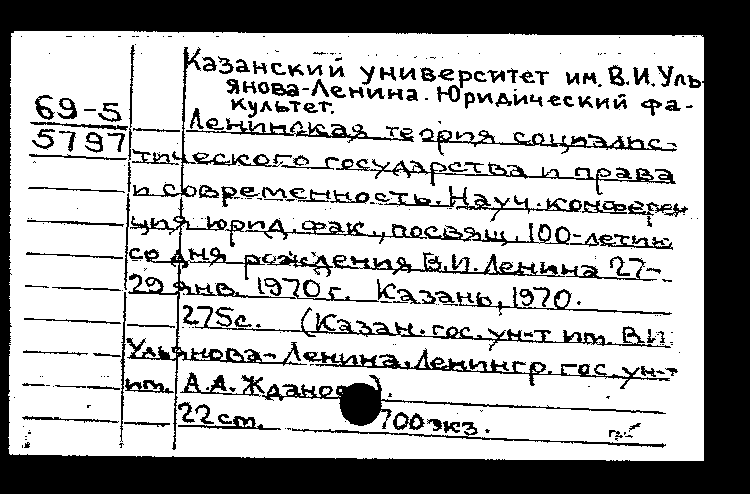 Казанский университет им. В.И. Уль-
янова-Ленина. Юридический фа-
культет.
69-5
5797
Ленинская теория социалис-
тического государства и права
и современность. Науч. конферен
ция юрид. фак., посвящ. 100-летию
со дня рождения В.И. Ленина 27-
29 янв. 1970 г. Казань, 1970.
275с. (Казан. гос. ун-т им. В.И.
Ульянова-Ленина. Ленингр. гос. ун-т
им. А.А. Жданова).
22 см. 700 экз.